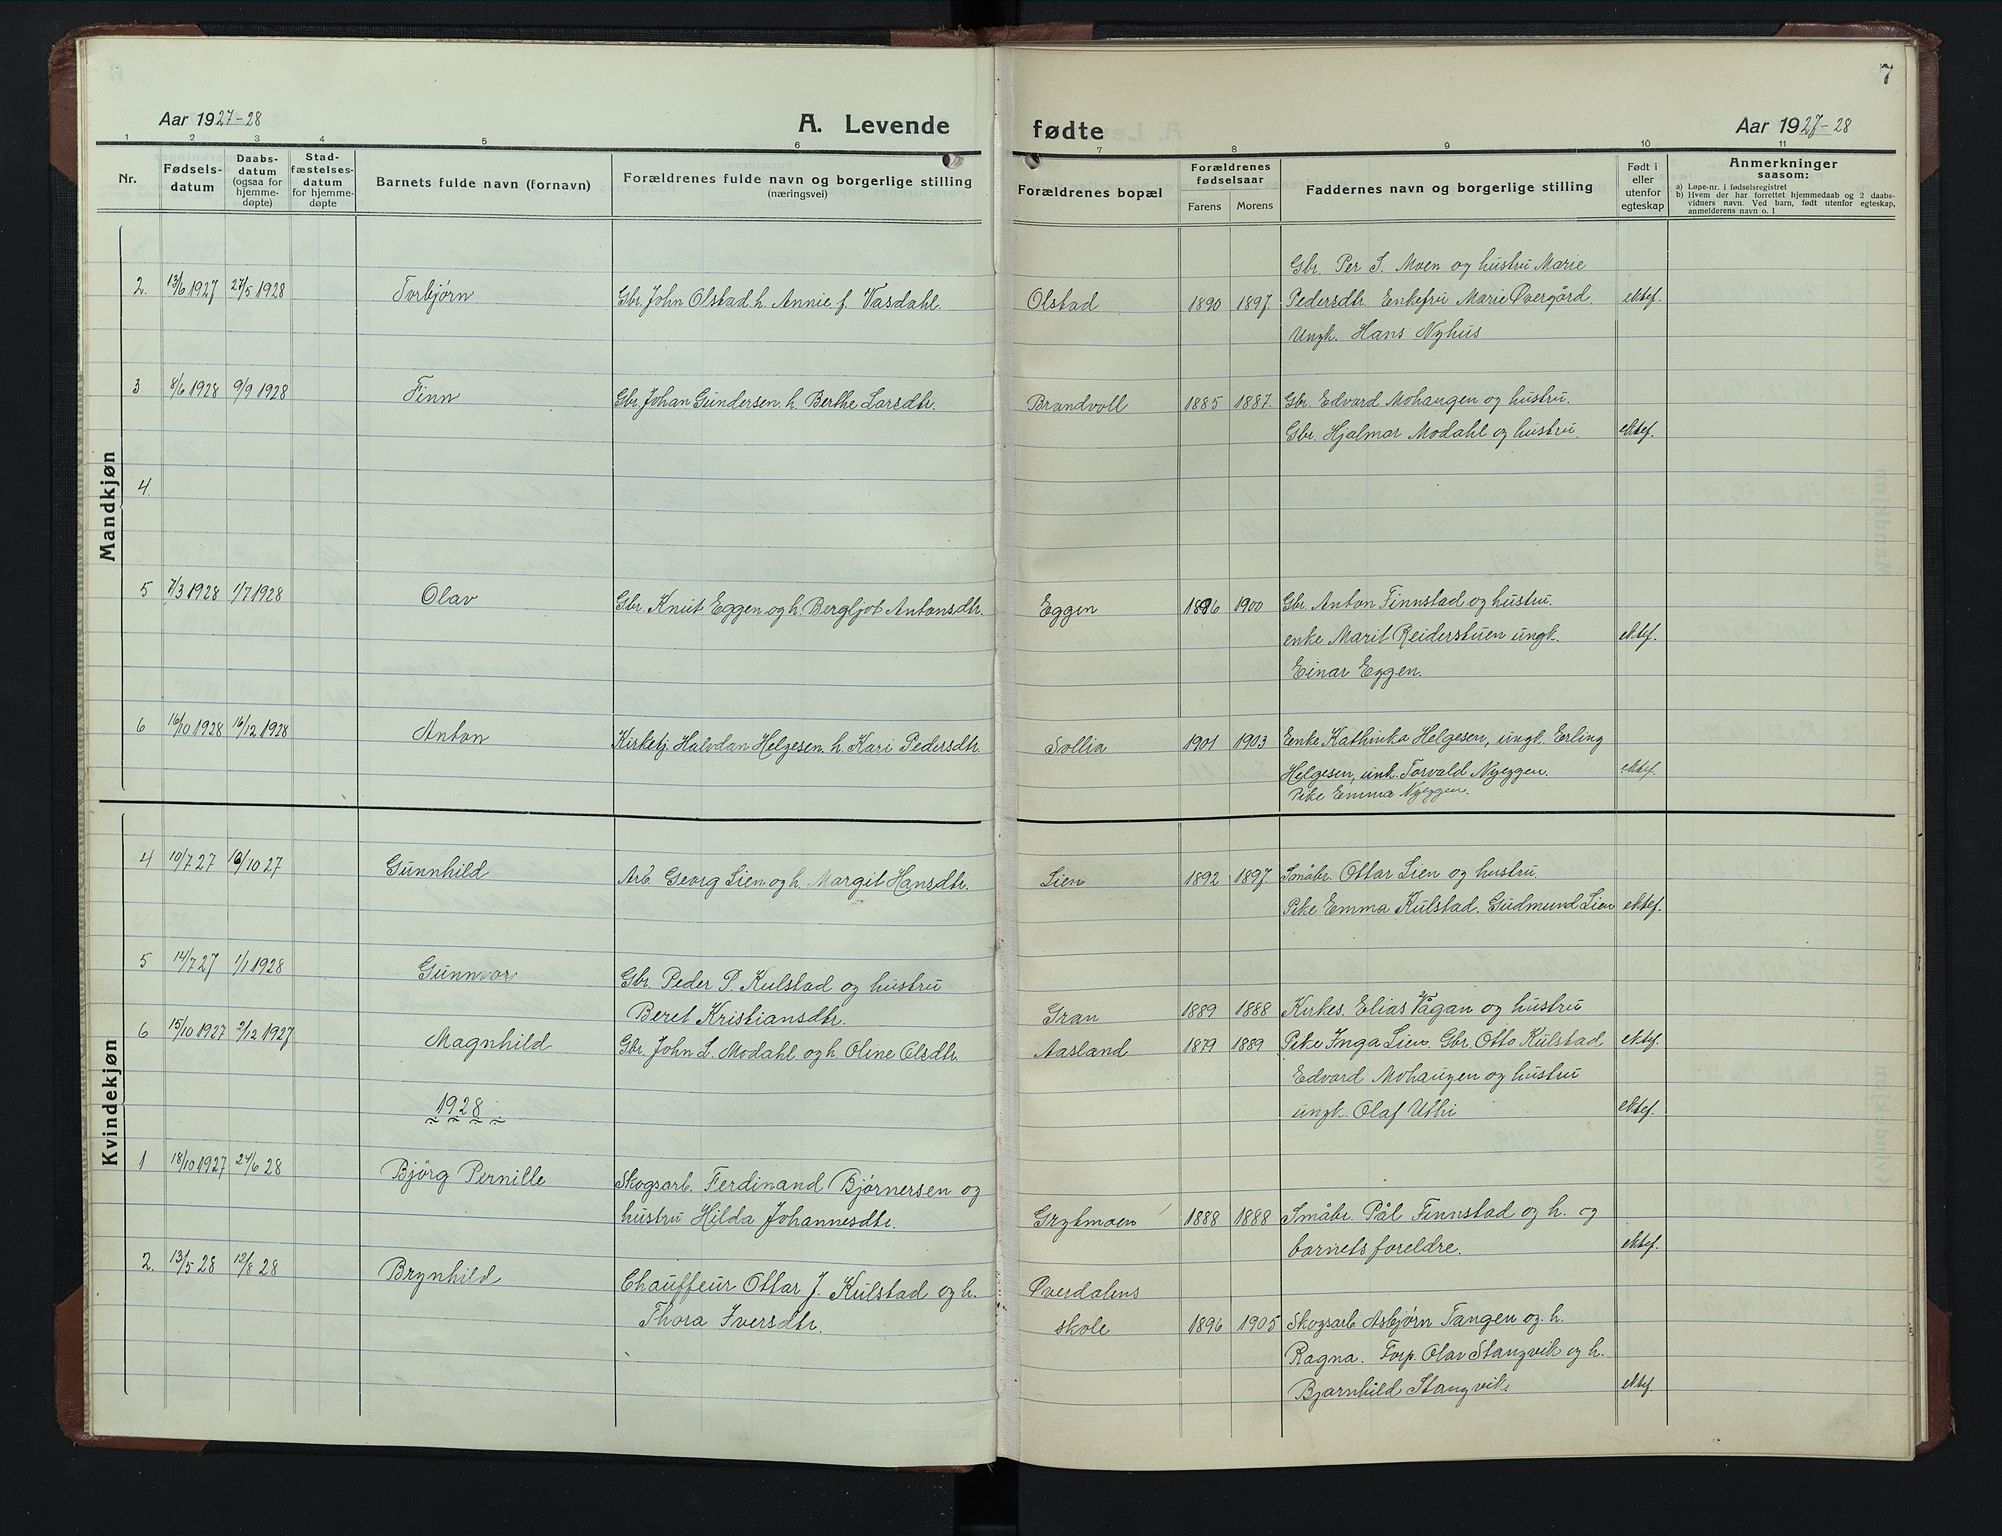 7
Aar 1927-28
A. Levende
fødte
Aar 1927-28
1 2 3 4 5 6 7 8 9 10 11
Nr.
Fødsels-
datum
Daabs-
datum
(ogsaa for
hjemme-
døpte)
Stad-
fæstelses-
datum
for hjemme-
døpte
Barnets fulde navn (fornavn)
Forældrenes fulde navn og borgerlige stilling
(næringsvei)
Forældrenes bopæl
Forældrenes
fødselsaar
Farens Morens
Faddernes navn og borgerlige stilling
Født i
eller
utenfor
egteskap
Anmerkninger
saasom:
a) Løpe-nr. i fødselsregistret
b) Hvem der har forrettet hjemmedaab og 2 daabs-
vidners navn. Ved barn, født utenfor egteskap,
anmelderens navn o. l
Mandkjøn
Gbr. Per S. Moen og hustru Marie
2. 13/6 1927 27/5 1928 Torbjørn Gbr. John Olstad h. Annie f. Vasdahl. Olstad 1890 1897. Pedersdtr. Enkefru Marie Øvergård ektef.
Ungk. Hans Nyhus
3 8/6 1928 9/9 1928 Finn Gbr. Johan Gundersen. h. Berthe Larsdtr. Brandvoll 1885 1887. Gbr. Edvard Mohaugen og hustru.
Gbr. Hjalmar Modahl og hustru. ektef.
4.
5 7/3 1928 1/7 1928 Olav Gbr. Knut Eggen og h. Bergljot Antonsdtr. Eggen 1896 1900 Gbr. Anton Finnstad og hustru.
enke Marit Reiderstuen ungk. ektef.
Einar Eggen.
6 16/10 1928 16/12 1928 Anton Kirketj. Halvdan Helgesen. h. Kari Pedersdtr. Sollia 1901 1903 Enke Kathinka Helgesen, ungk. Erling
Helgesen, unk. Torvald Nyeggen. ektef.
Pike Emma Nyeggen.
Kvindekjøn
4 10/7 27 /10 27 Gunnhild Arb. Georg Lien og h. Margit Hansdtr. Lien 1892 1897. Småbr. Ottar Lien og hustru.
Pike Emma Kulstad. Gudmund Lien ektef.
5 14/7 27 1/1 1928 Gunnvor Gbr. Peder P. Kulstad og hustru
Beret Kristiansdtr. Gran 1889 1888 Kirkes. Elias Vågan og hustru
6 15/10 1927 2/12 1927 Magnhild Gbr. John L. Modahl og h. Oline Elsdtr. Aasland 1879 1889 Pike Inga Lien. Gbr. Otto Kulstad ektef.
Edvard Mohaugen og hustru
1928 ungk. Olaf Uthi ektef.
1 18/10 1927 24/6 28 Bjørg Pernille Skogsarb. Ferdinand Bjørnersen og
hustru Hilda Johannesdtr. Grytmoen 1888 1888 Småbr. Pål Finnstad og h. og
barnets foreldre. ektef.
2. 13/5 28 12/8 28 Brynhild Chauffeur Ottar J. Kulstad og h. Øverdalens
Thora Iversdtr. skole 1896 1905 Skogsarb. Asbjørn Tangen og. h.
Ragna. Forp. Olav Stangvik og h.
Bjarnhild Stangvik. ektef.